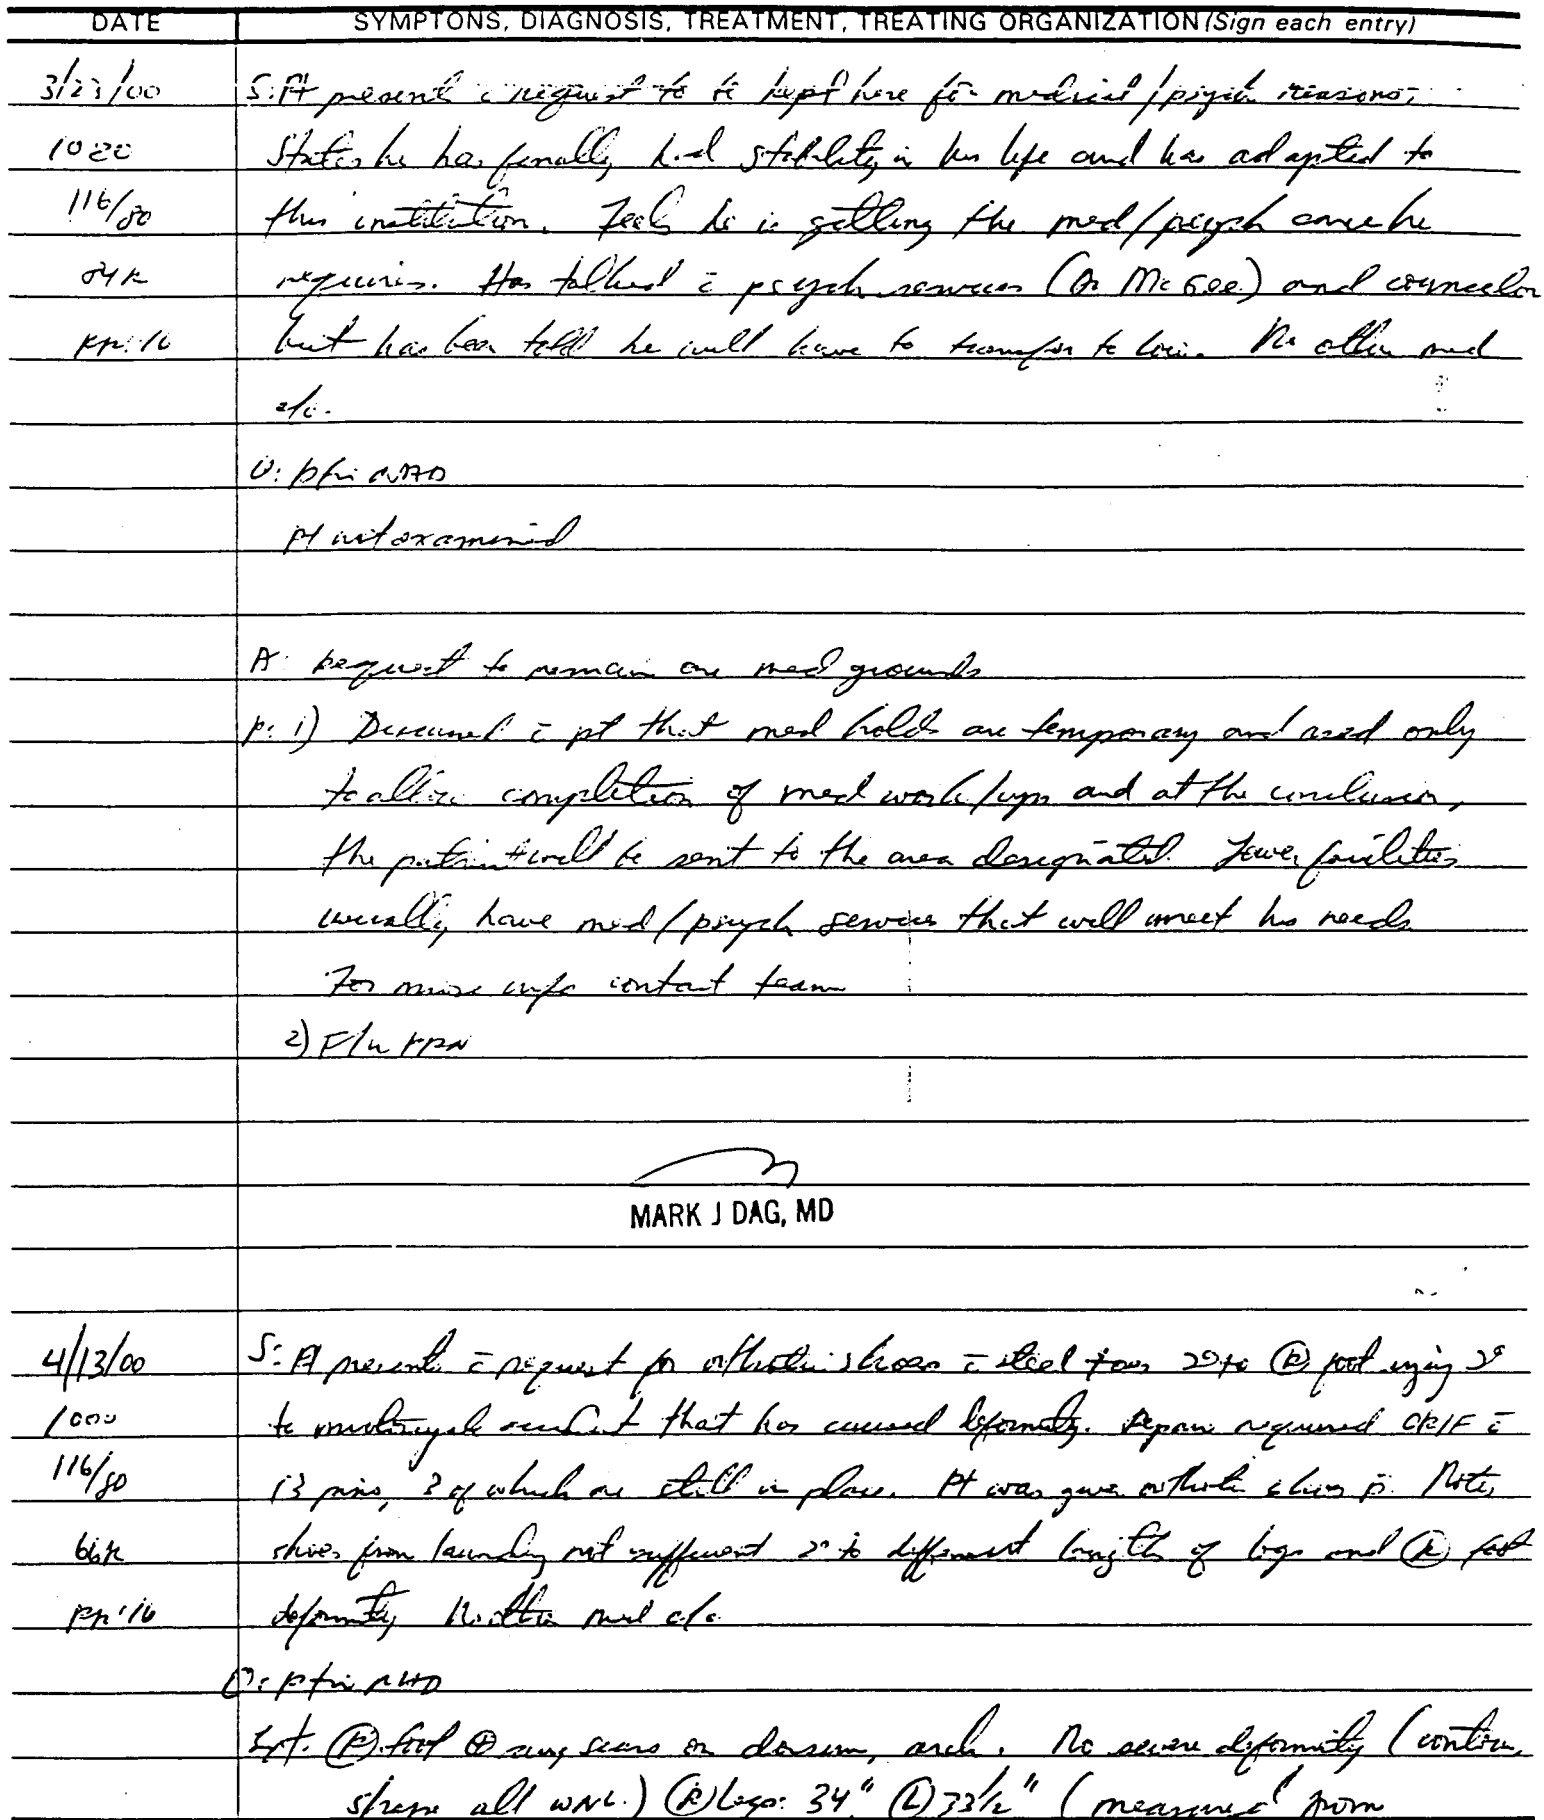 DATE SYMPTONS, DIAGNOSIS, TREATMENT, TREATING ORGANIZATION (Sign each entry)
3/23/00 S: Pt presents c̄ request to be kept here for medical/psych reasons.
1020 States he has finally had stability in his life and has adapted to
116/80 this institution. Feels he is getting the med/psych care he
84R requires. Has talked c̄ psych services (Dr McGee) and counselor
RR: 16 but has been told he will have to transfer to low. No other med
c/o.
O: Pt in NAD
Pt not examined
A: Request to remain on med grounds
P: 1) Discussed c̄ pt that med holds are temporary and used only
to allow completion of med work/ups and at the conclusion,
the patient will be sent to the area designated. Lower facilities
usually have med/psych services that will meet his needs
For more info contact team
2) F/u PRN
MARK J DAG, MD
4/13/00 S: Pt presents c̄ request for orthotic shoes c̄ steel toes 2° to Ⓡ foot injury 2°
1000 to motorcycle accident that has caused deformity. Repair required ORIF c̄
116/80 13 pins, 3 of which are still in place. Pt was given orthotic shoes p̄. Notes
66R shoes from laundry not sufficient 2° to different lengths of legs and Ⓡ foot
RR: 16 deformity No other med c/o
O: Pt in NAD
Ext. Ⓡ foot ⊕ surg scars on dorsum, arch. No severe deformity (contour,
shape all WNL.) Ⓡ Legs: 34" Ⓛ 33 1/2" (measured from